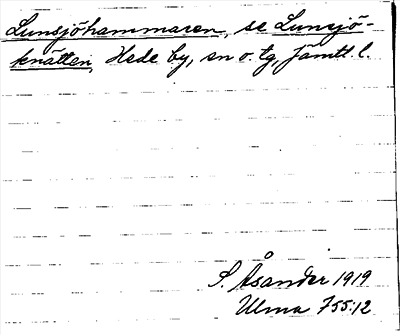 Lunsjöhammaren, se Lunsjö-
knätten, Hede by, sn o. tg, Jämtl. l.
S. Åsander 1919
Ulma 755:12